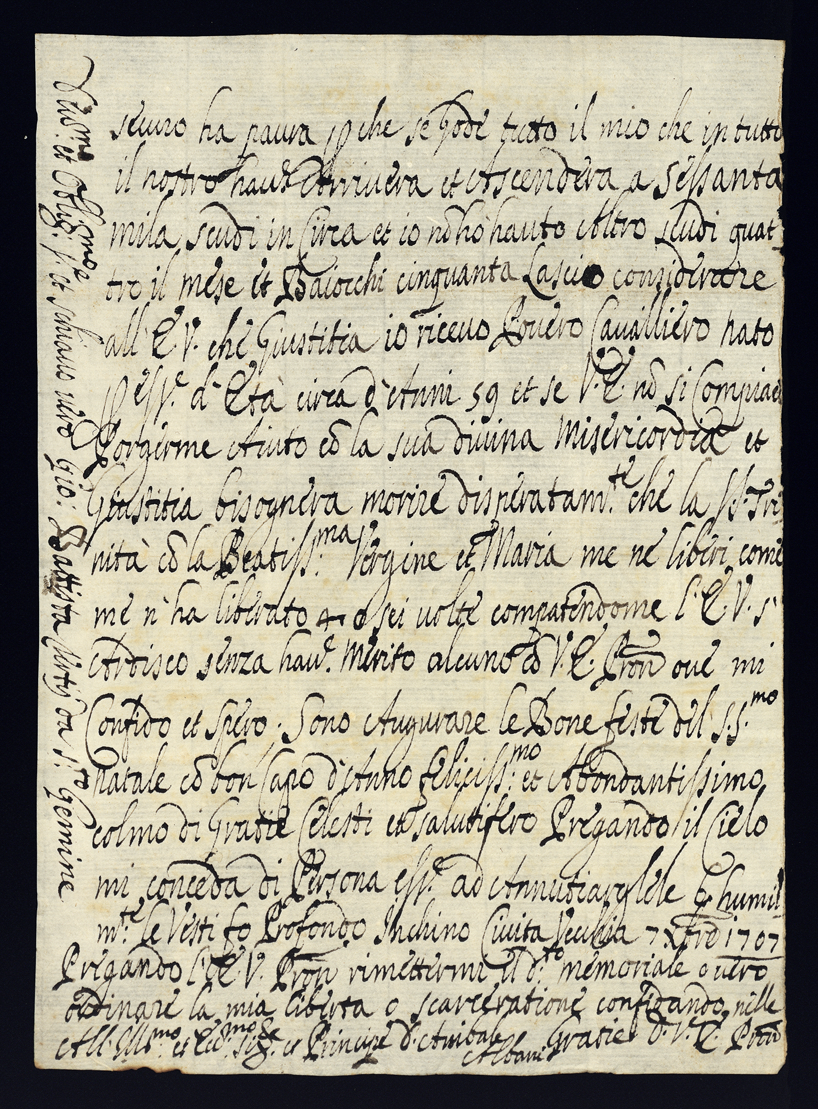 securo ha paura p che se gode tutto il mio che in tutto
il nostro hav.e Arrivera et Ascendera a sessanta
mila scudi in Circa et io nō hò hauto Altro scudi quat
tro il mese et Baiocchi cinquanta Lascio considerare
all' E.V. che Giustitia io ricevo Povero Cavalliero nato
p ess.e d' Età circa d'Anni 59 et se V.E. nō si Compiace
Porgerme Aiuto cō la sua divina Misericordia et
Giustitia bisognera morire disperatam.te che la SS. Tri
nità cō la Beatiss.ma Vergine et Maria me ne liberi come
me n' ha liberato 4 o sei volte compatendome l'E.V. s'
Ardisco senza hav.e Merito alcuno cō V.E. Prōn ove mi
Confido et spero. Sono Augurare le Bone feste del S.S.mo
natale cō bon Capo d'Anno feliciss.mo et Abondantissimo
colmo di Gratie Celesti et salutifero Pregando il Cielo
mi conceda di Persona ess.e ad Annutiarglele q humil
m.te le Vesti fo Profondo Inchino Civita Vecchia 7 Xbre 1707
Pregando l' E.V. Prōn rimettermi il d.to memoriale overo
ordinare la mia liberta o scarceratione confidando nelle
Gratie d. V. E. Prōn
All. Ill.mo et Ecc.mo Sig.e et Principe d. Anibale Albani
Dev.mo et Oblig.mo s.e et schiavo vero Gio: Battista da S.to Gemine